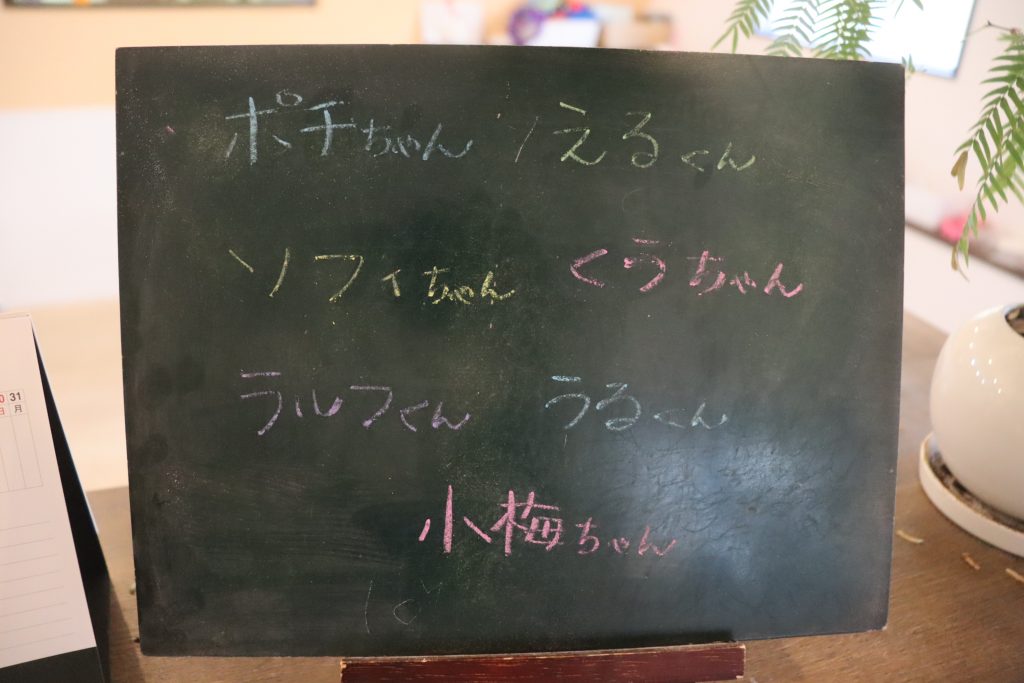 ポチちゃん えるくん
ソフィちゃん くうちゃん
ラルフくん うるくん
小梅ちゃん
31
月